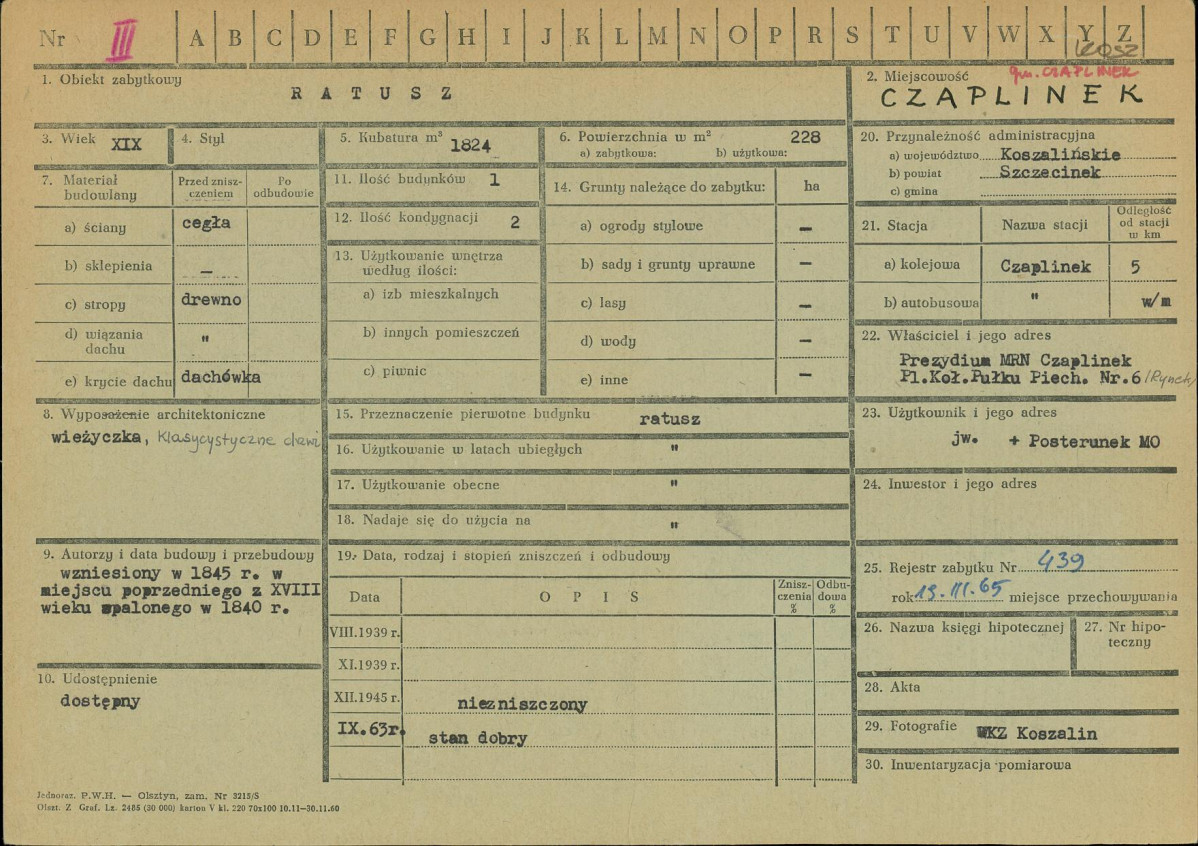 Nr III A B C D E F G H I J K L M N O P R S T U V W X Y Z
KOSZ
1. Obiekt zabytkowy
RATUSZ
2. Miejscowość
gm. CZAPLINEK
CZAPLINEK
3. Wiek XIX
4. Styl
5. Kubatura m³ 1824
6. Powierzchnia w m² 228
a) zabytkowa: b) użytkowa:
7. Materiał budowlany
Przed znisz-
czeniem
Po
odbudowie
a) ściany cegła
b) sklepienia —
c) stropy drewno
d) wiązania
dachu "
e) krycie dachu dachówka
8. Wyposażenie architektoniczne
wieżyczka, klasycystyczne drzwi
9. Autorzy i data budowy i przebudowy
wzniesiony w 1845 r. w
miejscu poprzedniego z XVIII
wieku spalonego w 1840 r.
10. Udostępnienie
dostępny
11. Ilość budynków 1
12. Ilość kondygnacji 2
13. Użytkowanie wnętrza
według ilości:
a) izb mieszkalnych
b) innych pomieszczeń
c) piwnic
14. Grunty należące do zabytku: ha
a) ogrody stylowe —
b) sady i grunty uprawne —
c) lasy —
d) wody —
e) inne —
15. Przeznaczenie pierwotne budynku ratusz
16. Użytkowanie w latach ubiegłych "
17. Użytkowanie obecne "
18. Nadaje się do użycia na "
19. Data, rodzaj i stopień zniszczeń i odbudowy
Data
OPIS
Znisz-
czenia
%
Odbu-
dowa
%
VIII.1939 r.
XI.1939 r.
XII.1945 r. niezniszczony
IX.63r. stan dobry
20. Przynależność administracyjna
a) województwo Koszalińskie
b) powiat Szczecinek
c) gmina
21. Stacja
Nazwa stacji
Odległość
od stacji
w km
a) kolejowa Czaplinek 5
b) autobusowa " w/m
22. Właściciel i jego adres
Prezydium MRN Czaplinek
Pl.Koł.Pułku Piech. Nr.6 /Rynek/
23. Użytkownik i jego adres
jw. + Posterunek MO
24. Inwestor i jego adres
25. Rejestr zabytku Nr 439
rok 19.III.65 miejsce przechowywania
26. Nazwa księgi hipotecznej
27. Nr hipo-
teczny
28. Akta
29. Fotografie WKZ Koszalin
30. Inwentaryzacja pomiarowa
Jednoraz. P.W.H. — Olsztyn, zam. Nr 3215/S
Olszt. Z Graf. Lz. 2485 (30 000) karton V kl. 220 70x100 10.11—30.11.60